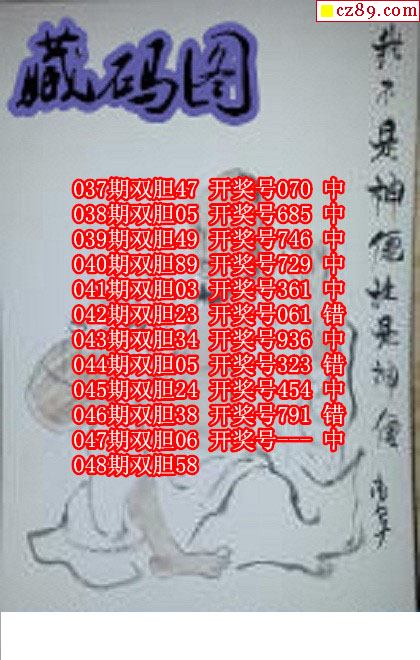 cz89.com
藏码图
037期双胆47 开奖号070 中
038期双胆05 开奖号685 中
039期双胆49 开奖号746 中
040期双胆89 开奖号729 中
041期双胆03 开奖号361 中
042期双胆23 开奖号061 错
043期双胆34 开奖号936 中
044期双胆05 开奖号323 错
045期双胆24 开奖号454 中
046期双胆38 开奖号791 错
047期双胆06 开奖号--- 中
048期双胆58
我不是神僊就是神僊